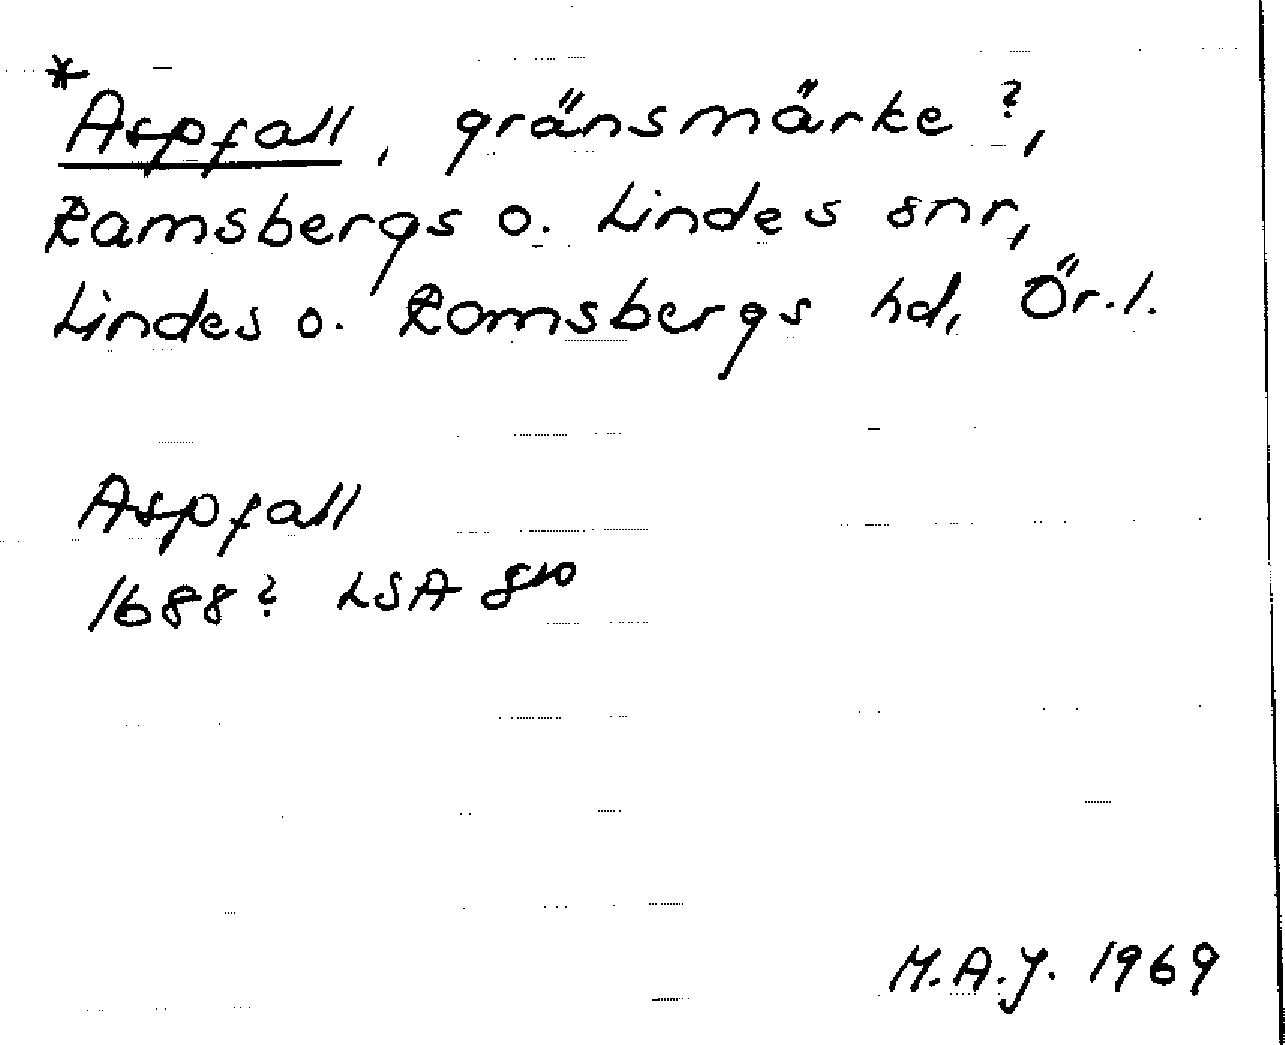 *Aspfall, gränsmärke?,
Ramsbergs o. Lindes snr,
Lindes o. Ramsbergs hd, Ör.l.
Aspfall
1688? LSA
M.A.J. 1969